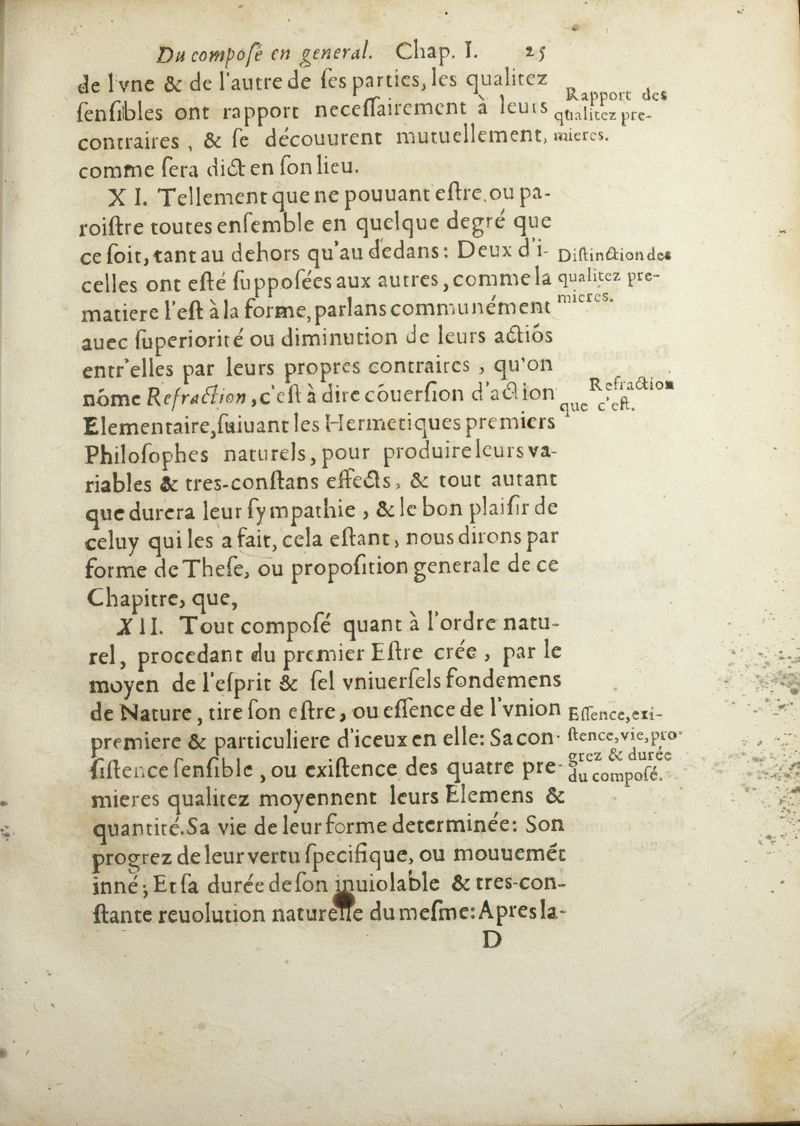 Du compoſé en general. Chap. I. 25
de l'vne & de l'autre de ſes parties, les qualitez
ſenſibles ont rapport neceſſairement à leurs
contraires, & ſe découurent mutuellement,
comme ſera dict en ſon lieu.
Rapport des
qualitez pre-
mieres.
XI. Tellement que ne pouuant eſtre, ou pa-
roiſtre toutes enſemble en quelque degré que
ce ſoit, tant au dehors qu'au dedans: Deux d'i-
celles ont eſté ſuppoſées aux autres, comme la
matiere l'eſt à la forme, parlans communément
auec ſuperiorité ou diminution de leurs actiõs
entr'elles par leurs propres contraires, qu'on
nõme Refraction, c'eſt à dire cõuerſion d'action
Elementaire, ſuiuant les Hermetiques premiers
Philoſophes naturels, pour produire leurs va-
riables & tres-conſtans effects, & tout autant
que durera leur ſympathie, & le bon plaiſir de
celuy qui les a fait, cela eſtant, nous dirons par
forme de Theſe, ou propoſition generale de ce
Chapitre, que,
Diſtinction des
qualitez pre-
mieres.
Refraction
que c'eſt.
XII. Tout compoſé quant à l'ordre natu-
rel, procedant du premier Eſtre crée, par le
moyen de l'eſprit & ſel vniuerſels fondemens
de Nature, tire ſon eſtre, ou eſſence de l'vnion
premiere & particuliere d'iceux en elle: Sa con-
ſiſtence ſenſible, ou exiſtence des quatre pre-
mieres qualitez moyennent leurs Elemens &
quantité. Sa vie de leur forme determinée: Son
progrez de leur vertu ſpecifique, ou mouuemẽt
inné; Et ſa durée de ſon inuiolable & tres-con-
ſtante reuolution naturelle du meſme: Apres la-
Eſſence, exi-
ſtence, vie, pro-
grez & durée
du compoſé.
D